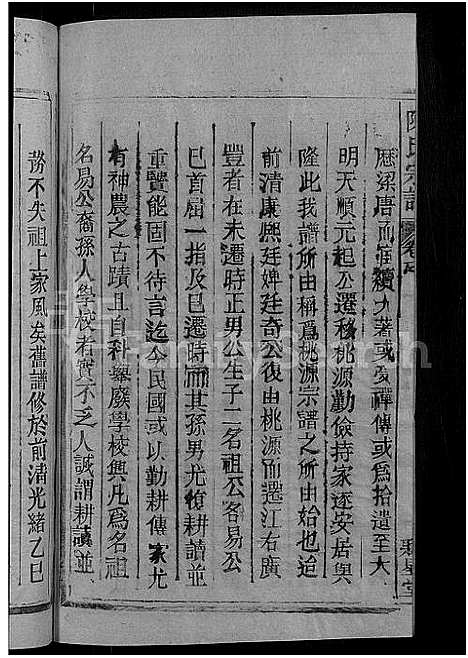 陳氏宗譜
歷梁唐而 績尤著或 禪傳或為拾遺至大
明天順元起公遷移桃源勤儉持家逐安居與
隆此我譜所由稱為桃源宗譜之所由始也迨
前清康熙廷婢廷奇公復由桃源而遷江右廣
豐者在未遷時正男公生子二名祖公客易公
巳首屈一指及巳遷時而其孫男尤復耕讀並
重豐能固不待言迄今民國或以勤耕傳家尤
有神農之古蹟且自科舉廢學校興凡為名祖
名易公裔孫人學校者實不乏人誠謂耕讀並
務不失祖上家風矣舊譜修於前清光緒乙巳
FamilySearch